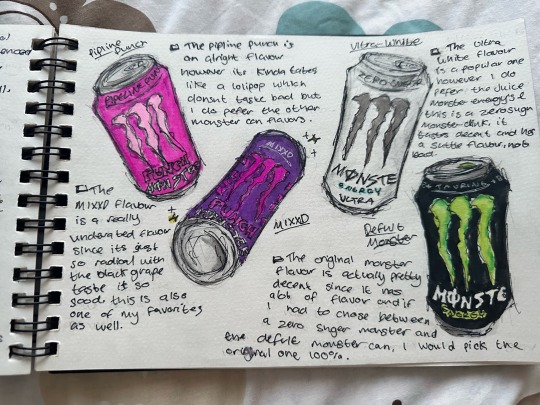 Pipline Punch
The pipline punch is
an alright flavour
however its kinda tastes
like a lolipop which
doesnt taste bad but
I do pefer the other
monster can flavors.
Ultra White
The Ultra
white flavour
is a popular one
however I do
pefer the Juice
monster energy's &
this is a zero sugar
Monster drink, it
tastes decent and has
a suttle flavour, not
bad.
ZERO SUGAR
MONSTE
ENERGY
ULTRA
PIPELINE PUNCH
PUNCH
MONSTE
MIXXD
PUNCH
MIXXD
The
MIXXD flavour
is a really
underrated flavour
since its just
so radical with
the black grape
taste it so
good this is also
one of my favorites
as well.
Defult
Monster
The original monster
flavour is actually pretty
decent since it has
alot of flavor and if
I had to chose between
a zero suger monster and
the defult monster can, I would pick the
original one 100%.
MONSTE
ENERGY